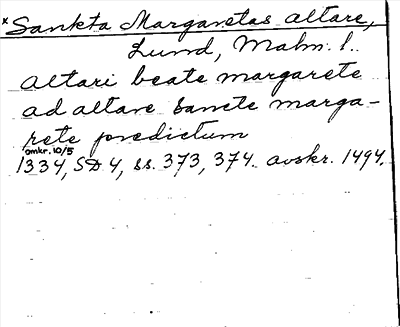 *Sankta Margaretas altare,
Lund, Malm. l..
altari beate margarete
ad altare sancte marga-
rete predictum
omkr. 10/5
1334, SD 4, ss. 373, 374. avskr. 1494.